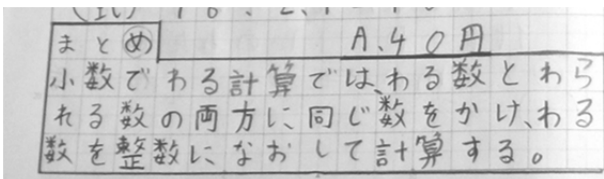 まとめ
A.40円
小数でわる計算では、わる数とわら
れる数の両方に同じ数をかけ、わる
数を整数になおして計算する。